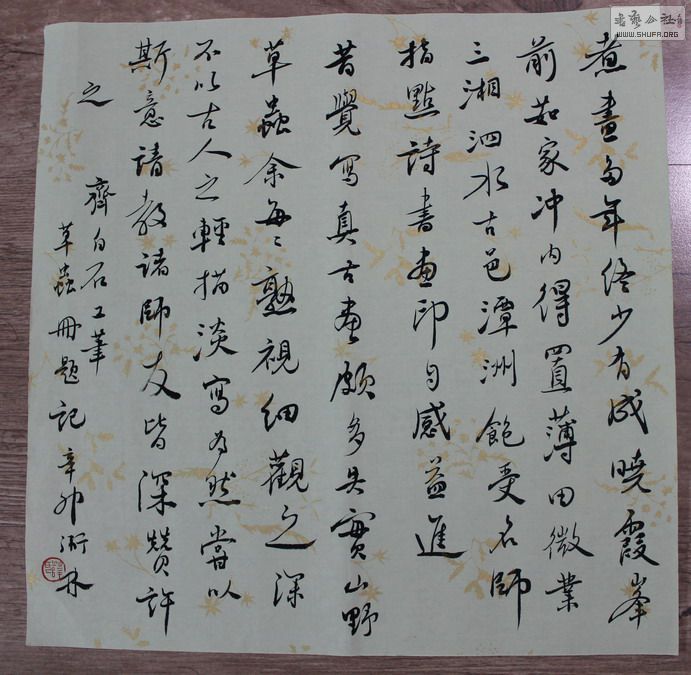 煮畫多年終少有成曉霞峯
前茹家冲内得置薄田微業
三湘泗水古邑潭洲飽受名師
指點詩書畫印自感益進
昔覺寫真古畫頗多失實山野
草蟲余每々熟視細觀之深
不以古人之輕描淡寫為然嘗以
斯意請教諸師友皆深贊許
之
齊白石工筆
草蟲冊題記 辛卯 衍林
書藝公社
WWW.SHUFA.ORG